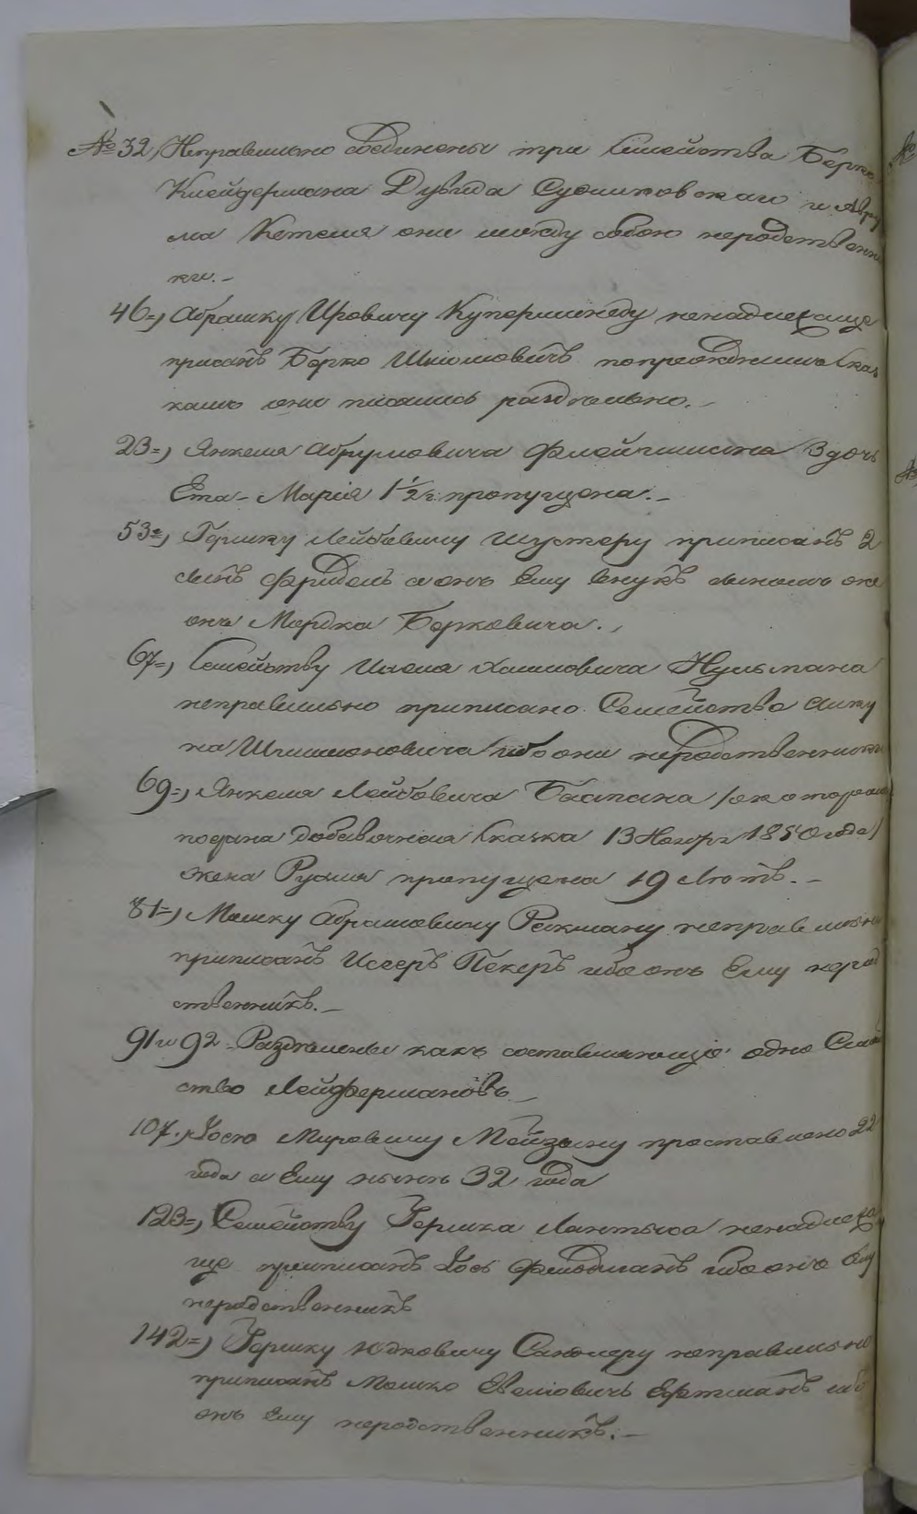 № 32, Неправильно соединены три Семейства Берка
Клейдермана Дувида и Авру
ма они между собою неродственни
ки. –
46=, Абрашку Ировичу ненадлежаще
писанъ Берко Шлиомовичъ по сказ
камъ они писались раздельно. –
23=, Янкеля Абрумовича 3 дочь
Ета – Марія 1½ г. пропущена. –
53=, Гершку Лейбовичу Шустеру приписанъ 2
сынъ Фридель а онъ Ему внукъ
онъ Мордка Берковича. ,
67=, Семейству Хаимовича Нульмана
неправильно приписано Семейство
на Шлиомоновича ибо они неродственники
69=, Янкеля Лейбовича /о которомъ
подана добавочная Сказка 13 Ноября 1850 года/
жена Рухля пропущена 19 Лѣтъ. –
81=, Мошку Абрамовичу неправильно
приписанъ Иссеръ Пекеръ ибо онъ Ему нерод
ственникъ. –
91 и 92 – Раздѣлены какъ составляющіе одно Семей
ство Лейдермановъ –
107., Іосю Мировичу проставлено 22
года а Ему нынѣ 32 года
123=, Семейству Гершка ненадлежа
ще приписанъ Іось Фельдманъ ибо онъ Ему
неродственникъ
142=, Гершку Юдковичу неправильно
приписанъ Мошко ибо
онъ Ему неродственникъ. –